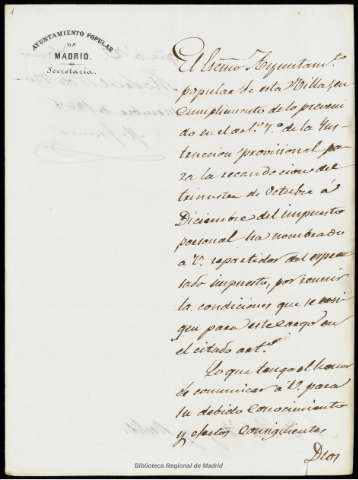 AYUNTAMIENTO POPULAR
DE
MADRID.
Secretaría.
El Escmo Ayuntam.to
popular de esta Villa, en
cumplimiento de lo preveni
do en el art.º 7.º de la Ins
truccion provisional pa
ra la recaudacion del
trimestre de Octubre á
Diciembre del impuesto
personal ha nombrado
a V. repartidor del espre
sado impuesto, por reunir
las condiciones que se exi
gen para este cargo en
el citado art.º
Lo que tengo el honor
de comunicar á V. para
su debido conocimiento
y efectos consiguientes
Dios
Biblioteca Regional de Madrid